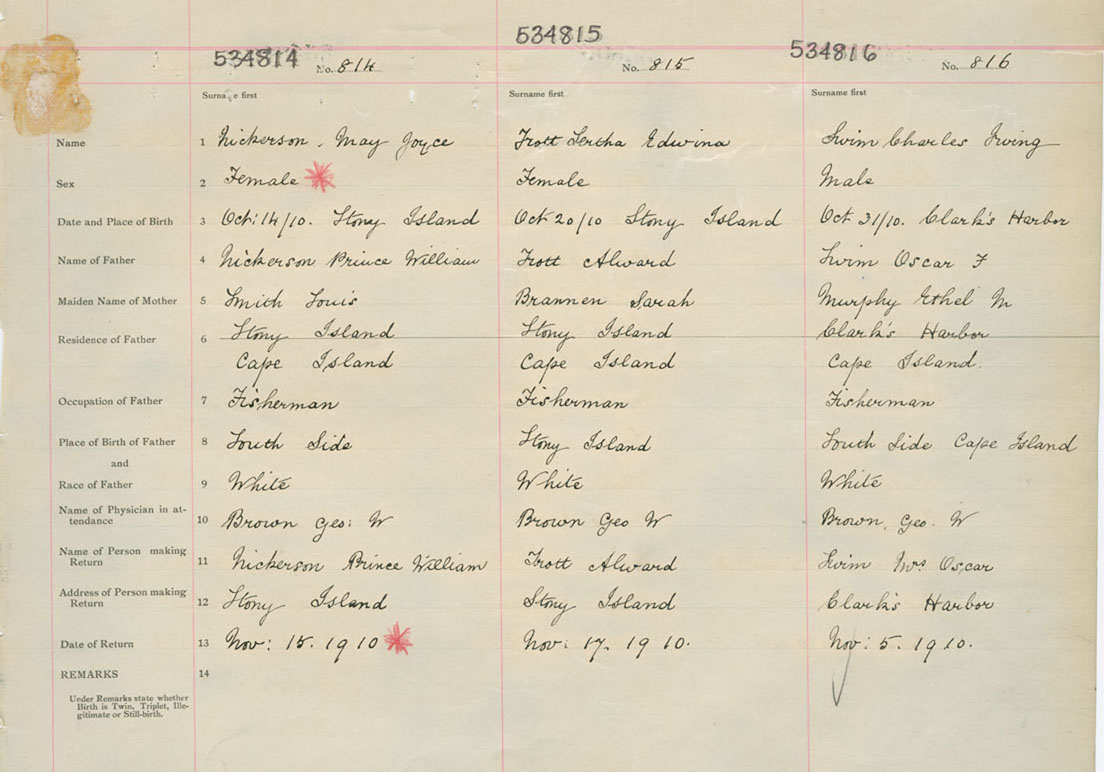 534814 534815 534816
No. 814 No. 815 No. 816
Surname first Surname first Surname first
Name 1 Nickerson, May Joyce Trott Edwina Swim Charles Irving
Sex 2 Female Female Male
Date and Place of Birth 3 Oct: 14/10. Stony Island Oct 20/10 Stony Island Oct 31/10. Clark's Harbor
Name of Father 4 Nickerson Prince William Trott Alward Swim Oscar F
Maiden Name of Mother 5 Smith Louis Brannen Sarah Murphy Ethel M
Residence of Father 6 Stony Island Stony Island Clark's Harbor
Cape Island Cape Island Cape Island.
Occupation of Father 7 Fisherman Fisherman Fisherman
Place of Birth of Father 8 South Side Stony Island South Side Cape Island
and
Race of Father 9 White White White
Name of Physician in at-
tendance 10 Brown Geo: W Brown Geo W Brown, Geo. W
Name of Person making
Return 11 Nickerson Prince William Trott Alward Swim Mrs Oscar
Address of Person making
Return 12 Stony Island Stony Island Clark's Harbor
Date of Return 13 Nov: 15. 1910 Nov: 17. 1910. Nov: 5. 1910.
REMARKS 14
Under Remarks state whether
Birth is Twin, Triplet, Ille-
gitimate or Still-birth.